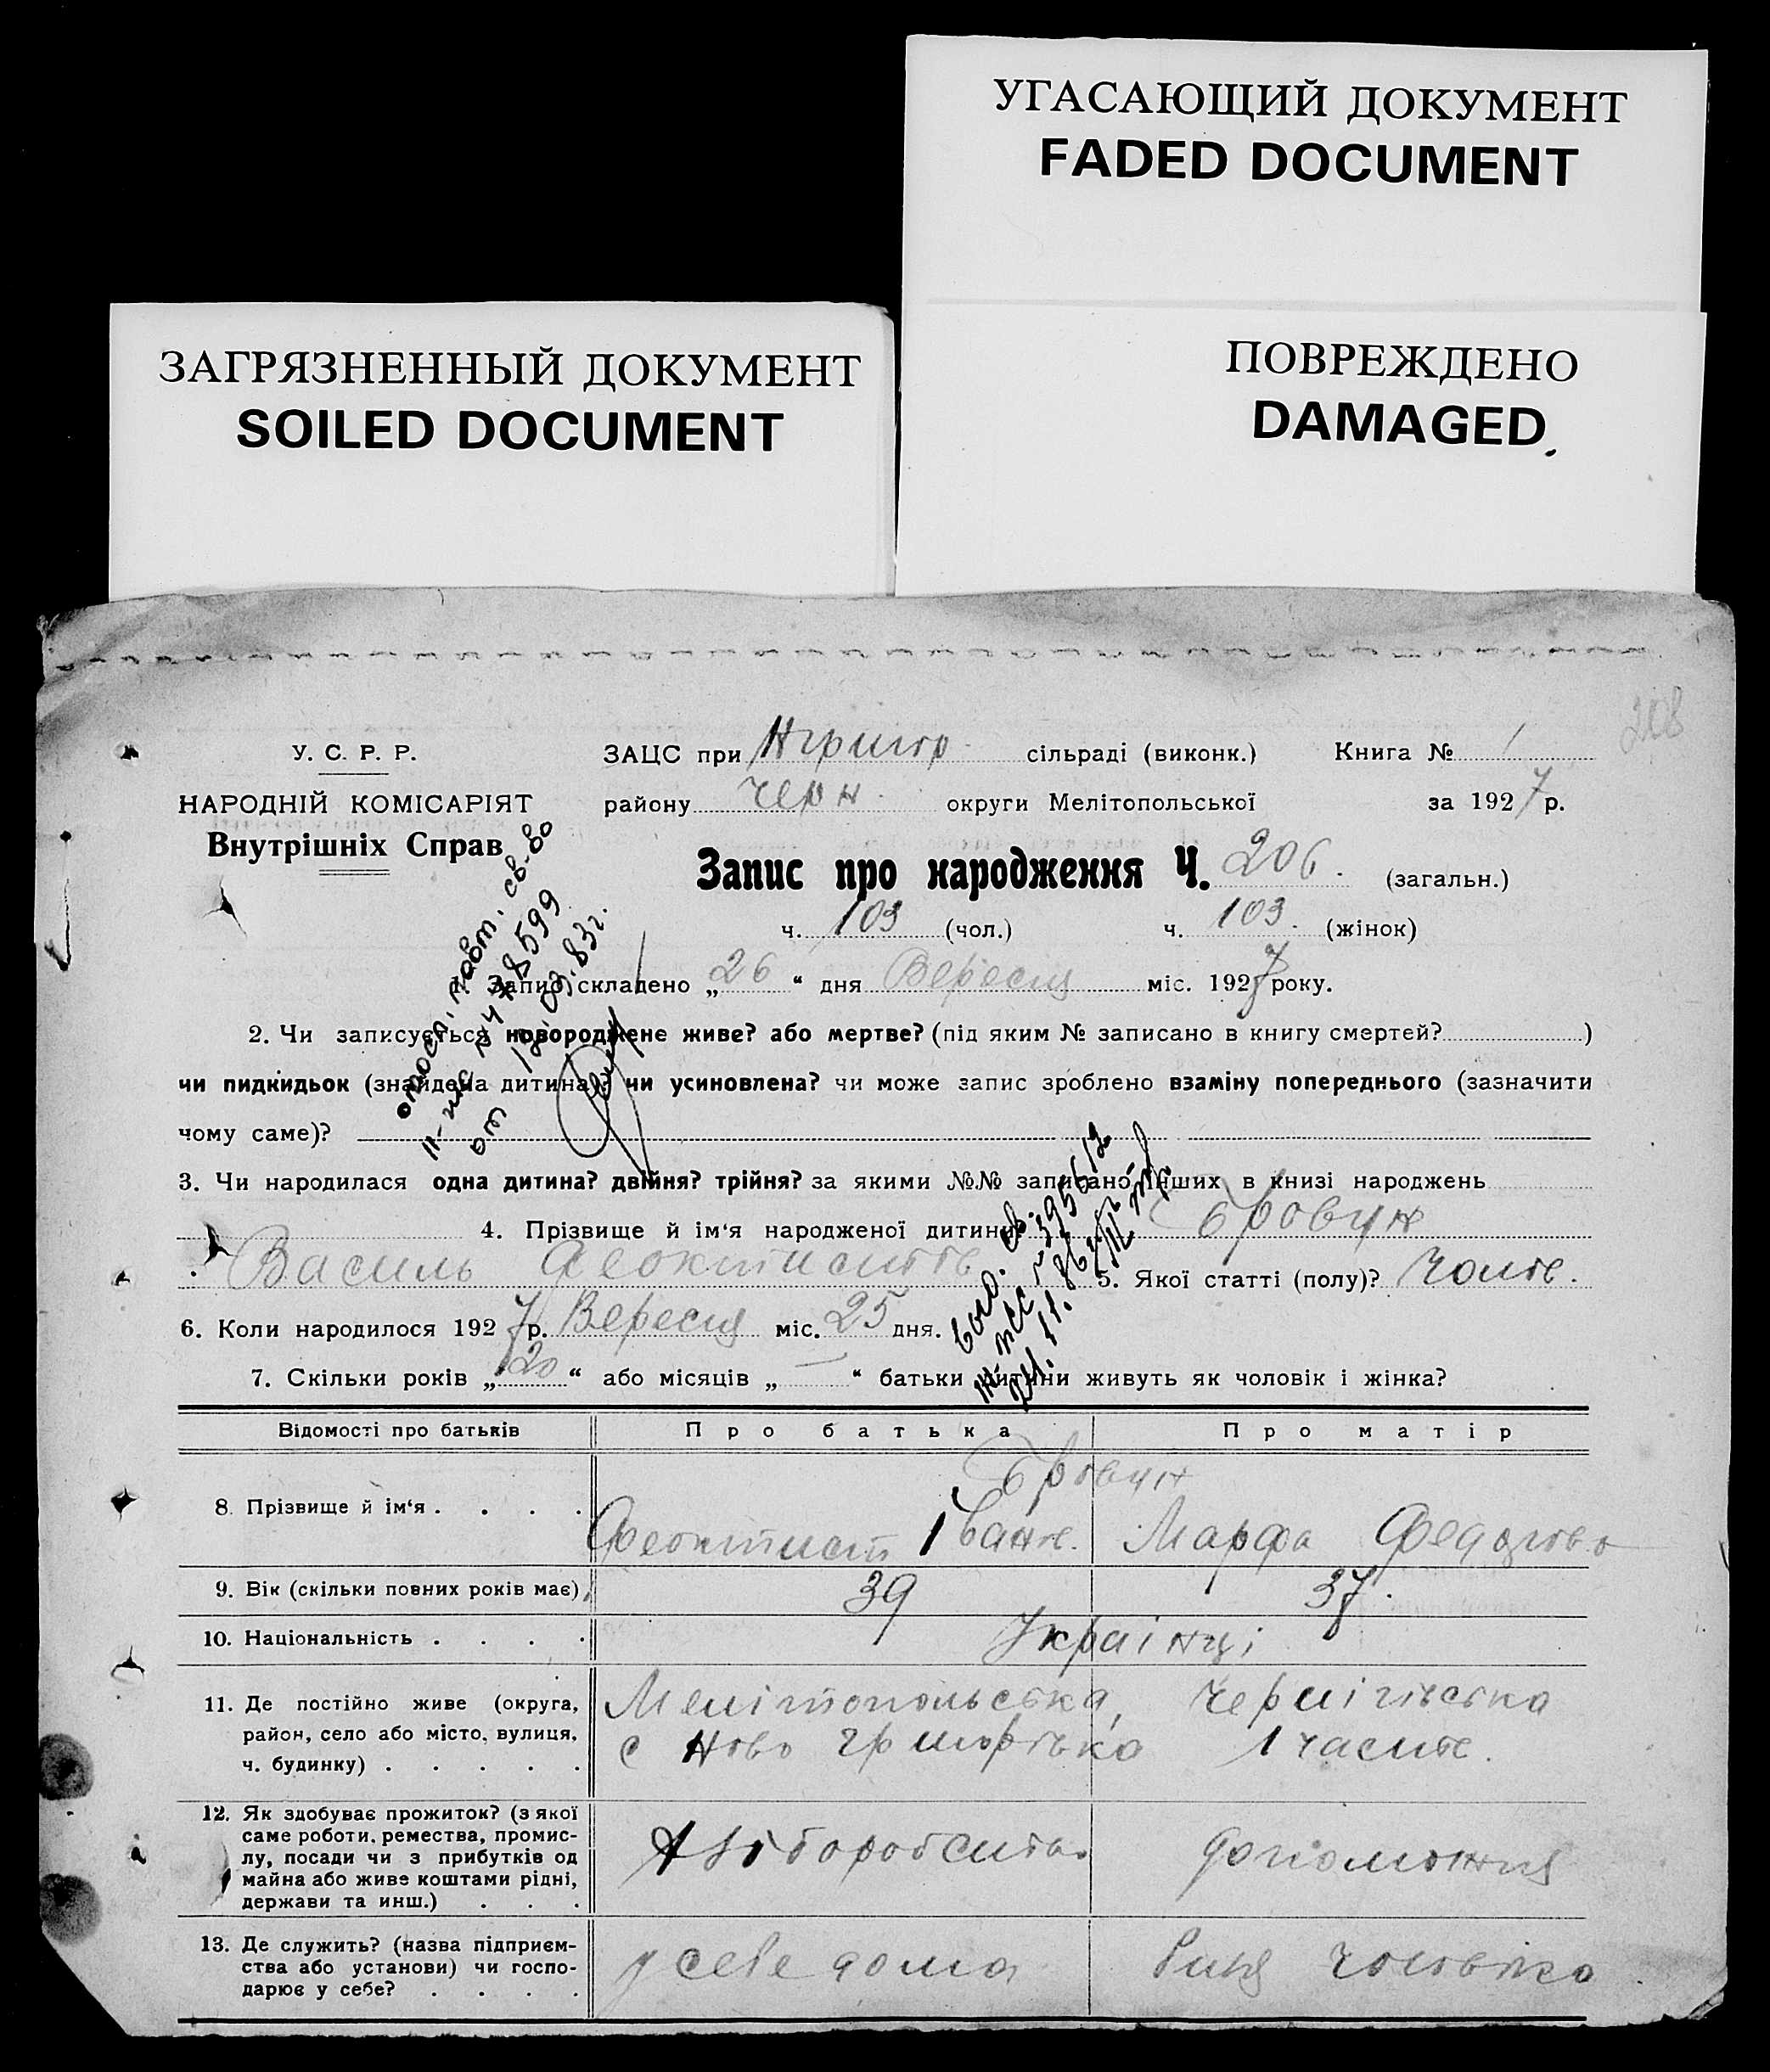 УГАСАЮЩИЙ ДОКУМЕНТ
FADED DOCUMENT
ЗАГРЯЗНЕННЫЙ ДОКУМЕНТ
SOILED DOCUMENT
ПОВРЕЖДЕНО
DAMAGED
208
У. С. Р. Р.
НАРОДНІЙ КОМІСАРІЯТ
Внутрішніх Справ
ЗАЦС при сільраді (виконк.) Книга № 1
району Черн округи Мелітопольської за 1927 р.
Запис про народження Ч. 206. (загальн.)
ч. 103 (чол.) ч. 103. (жінок)
1. Запис складено „26“ дня Вересня міс. 1927 року.
2. Чи записується новороджене живе? або мертве? (під яким № записано в книгу смертей?)
чи пидкидьок (знайдена дитина)? чи усиновлена? чи може запис зроблено взаміну попереднього (зазначити
чому саме)?
3. Чи народилася одна дитина? двійня? трійня? за якими №№ записано інших в книзі народжень
4. Прізвище й ім'я народженої дитини Бровун
Василь 5. Якої статті (полу)?
6. Коли народилося 1927 р. Вересня міс. 25 дня.
7. Скільки років „20“ або місяців „—“ батьки дитини живуть як чоловік і жінка?
повт. св-во
от 12.09.83г.
Відомості про батьків Про батька Про матір
8. Прізвище й ім'я . . . . Бровун
Феоктист Іван. Марфа
9. Вік (скільки повних років має) 39 37.
10. Національність . . . . Українці
11. Де постійно живе (округа, район, село або місто, вулиця, ч. будинку) . . . . . Мелітопольська, Чернігівська
с Ново 1 част.
12. Як здобуває прожиток? (з якої саме роботи, ремества, промислу, посади чи з прибутків од майна або живе коштами рідні, держави та инш.) . . .
13. Де служить? (назва підприємства або установи) чи господарює у себе? . . . . у себе дома чоловіка